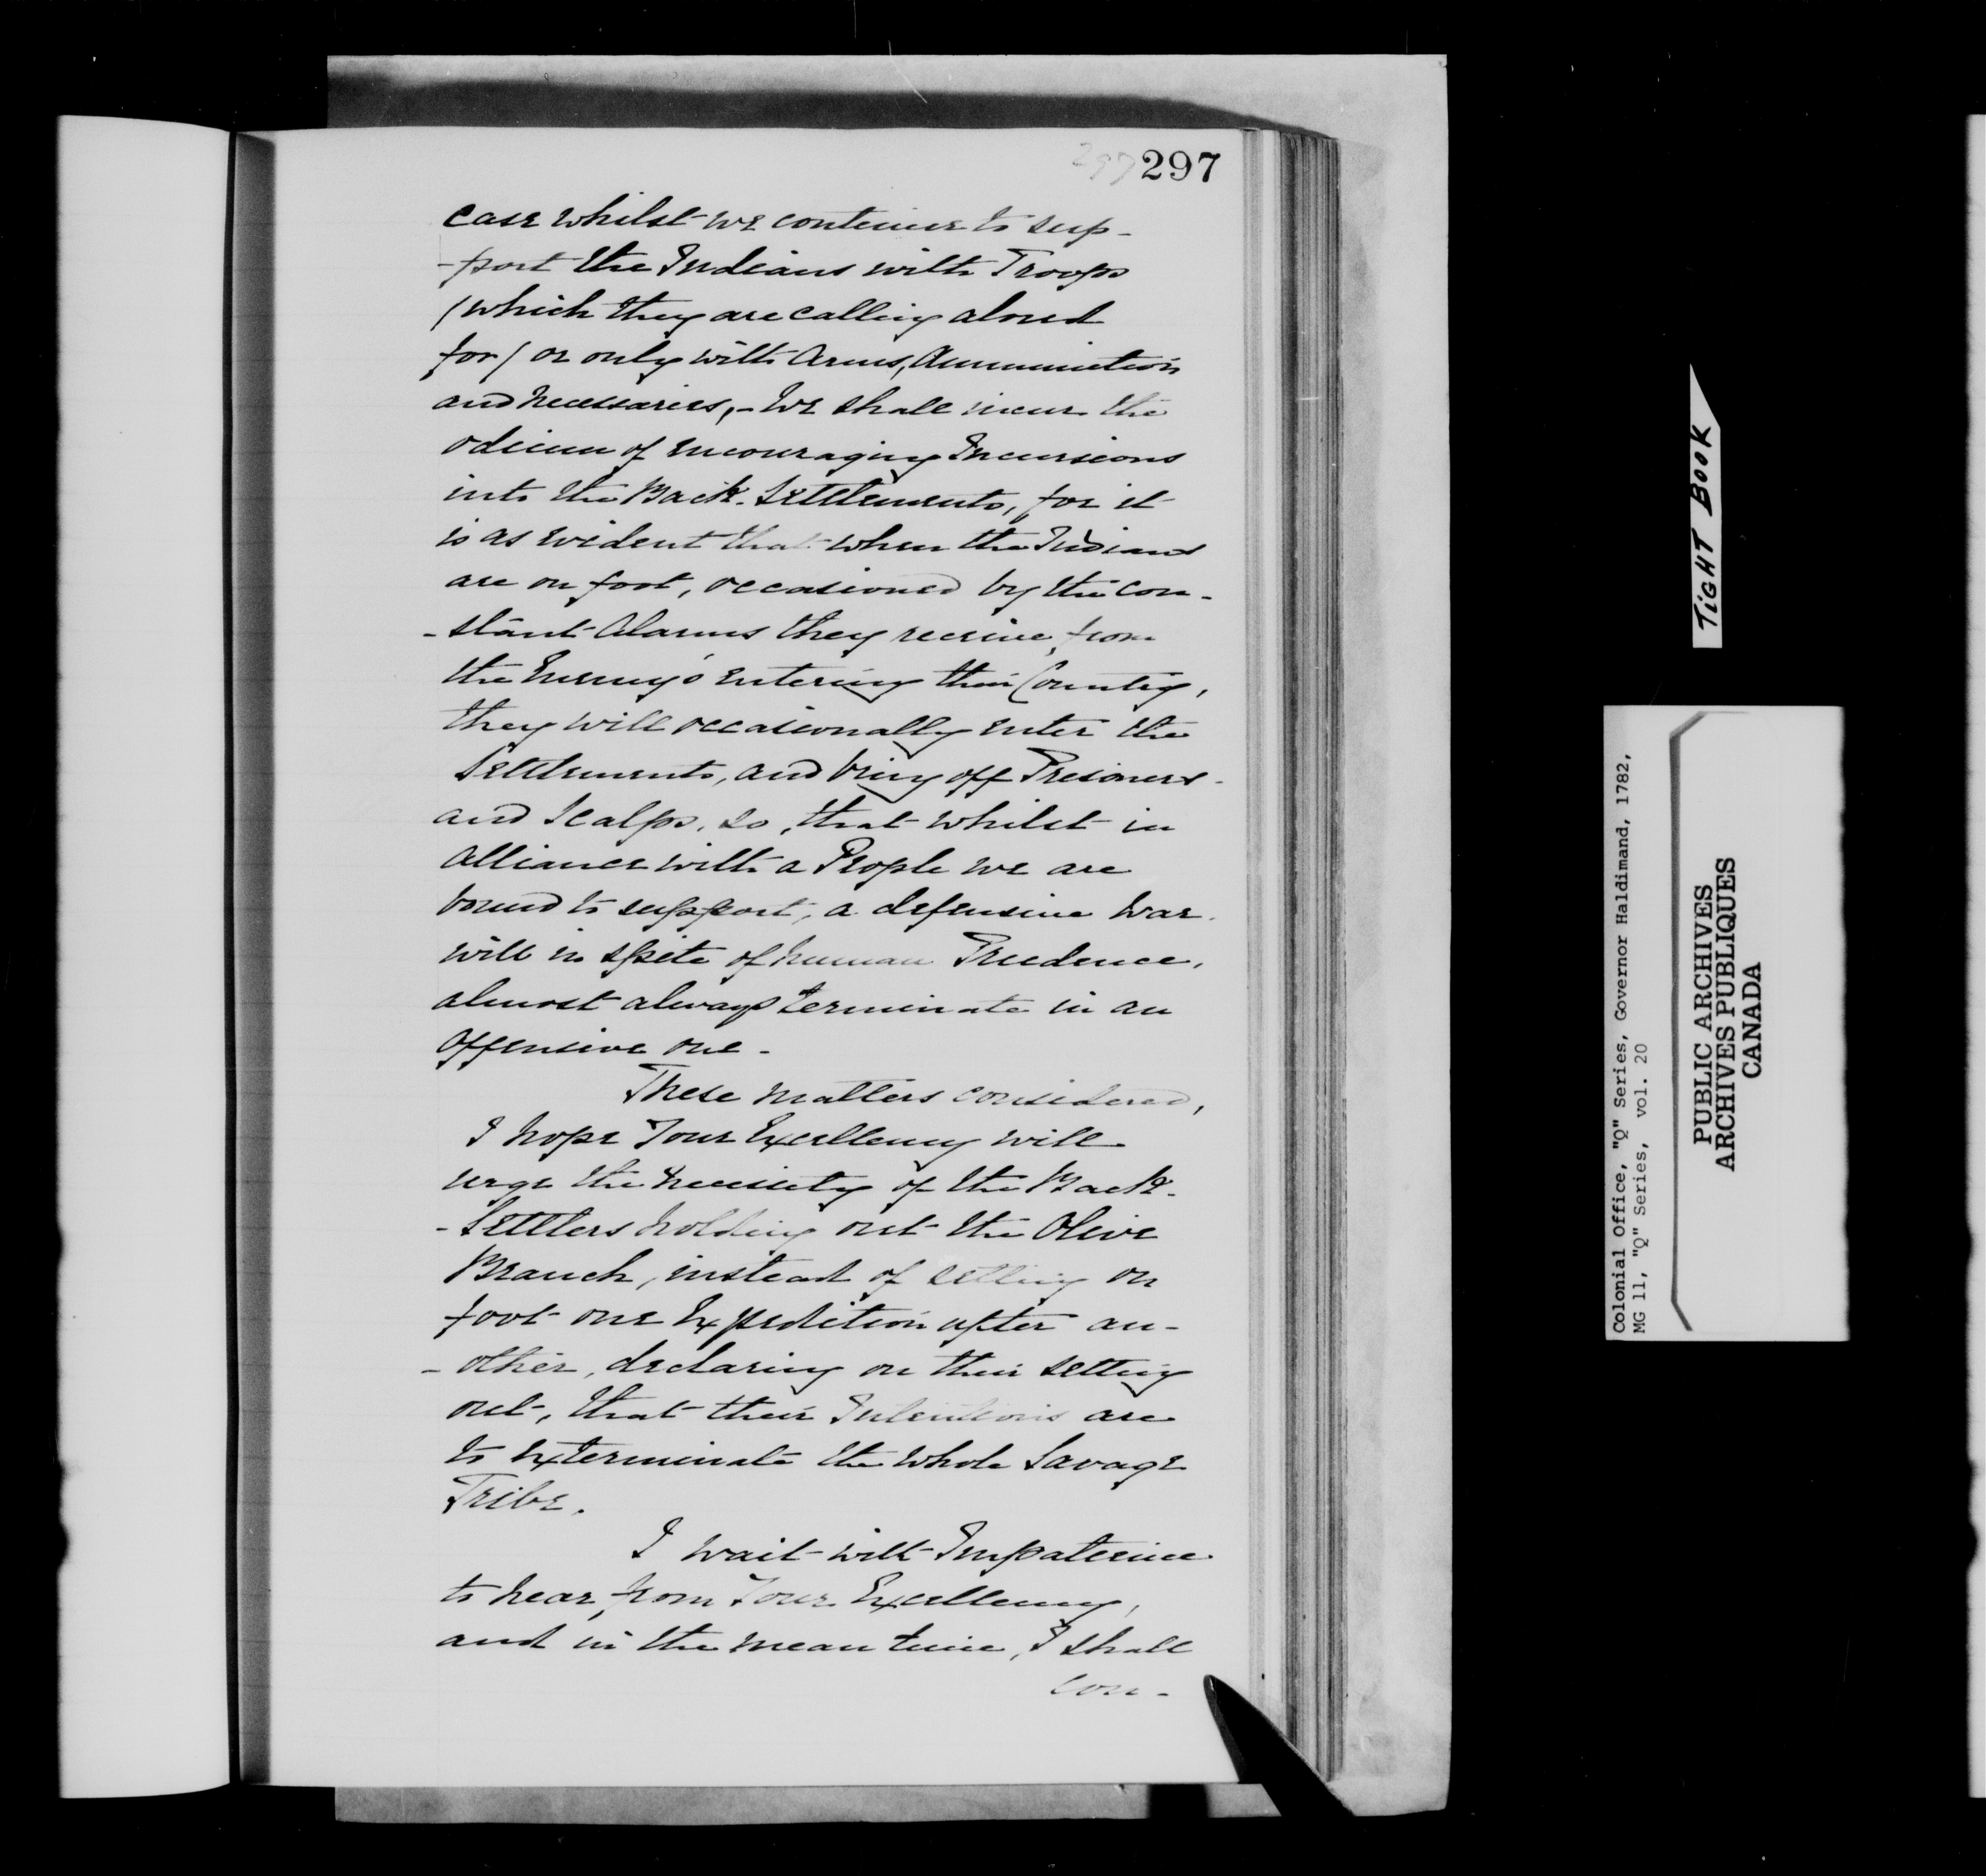 297 297
case whilst we continue to sup-
-port the Indians with Troops
(which they are calling aloud
for) or only with Arms, Ammunition
and necessaries, - We shall incur the
odium of encouraging Incursions
into the Back-Settlements, for it
is as evident that when the Indians
are on foot, occasioned by the con-
-stant Alarms they receive from
the Enemy's entering their Country,
they will occasionally enter the
Settlements, and bring off Prisoners
and Scalps, so, that whilst in
Alliance with a People we are
bound to support, a defensive War
will in spite of human Prudence,
almost always terminate in an
Offensive one -
These matters considered,
I hope Your Excellency will
urge the necessity of the Back-
-Settlers holding out the Olive
Branch, instead of setting on
foot one Expedition after an-
-other, declaring on their setting
out, that their Intentions are
to exterminate the whole Savage
Tribe.
I wait with Impatience
to hear from Your Excellency,
and in the mean time, I shall
con-
TIGHT BOOK
Colonial Office, "Q" Series, Governor Haldimand, 1782,
MG 11, "Q" Series, vol. 20
PUBLIC ARCHIVES
ARCHIVES PUBLIQUES
CANADA